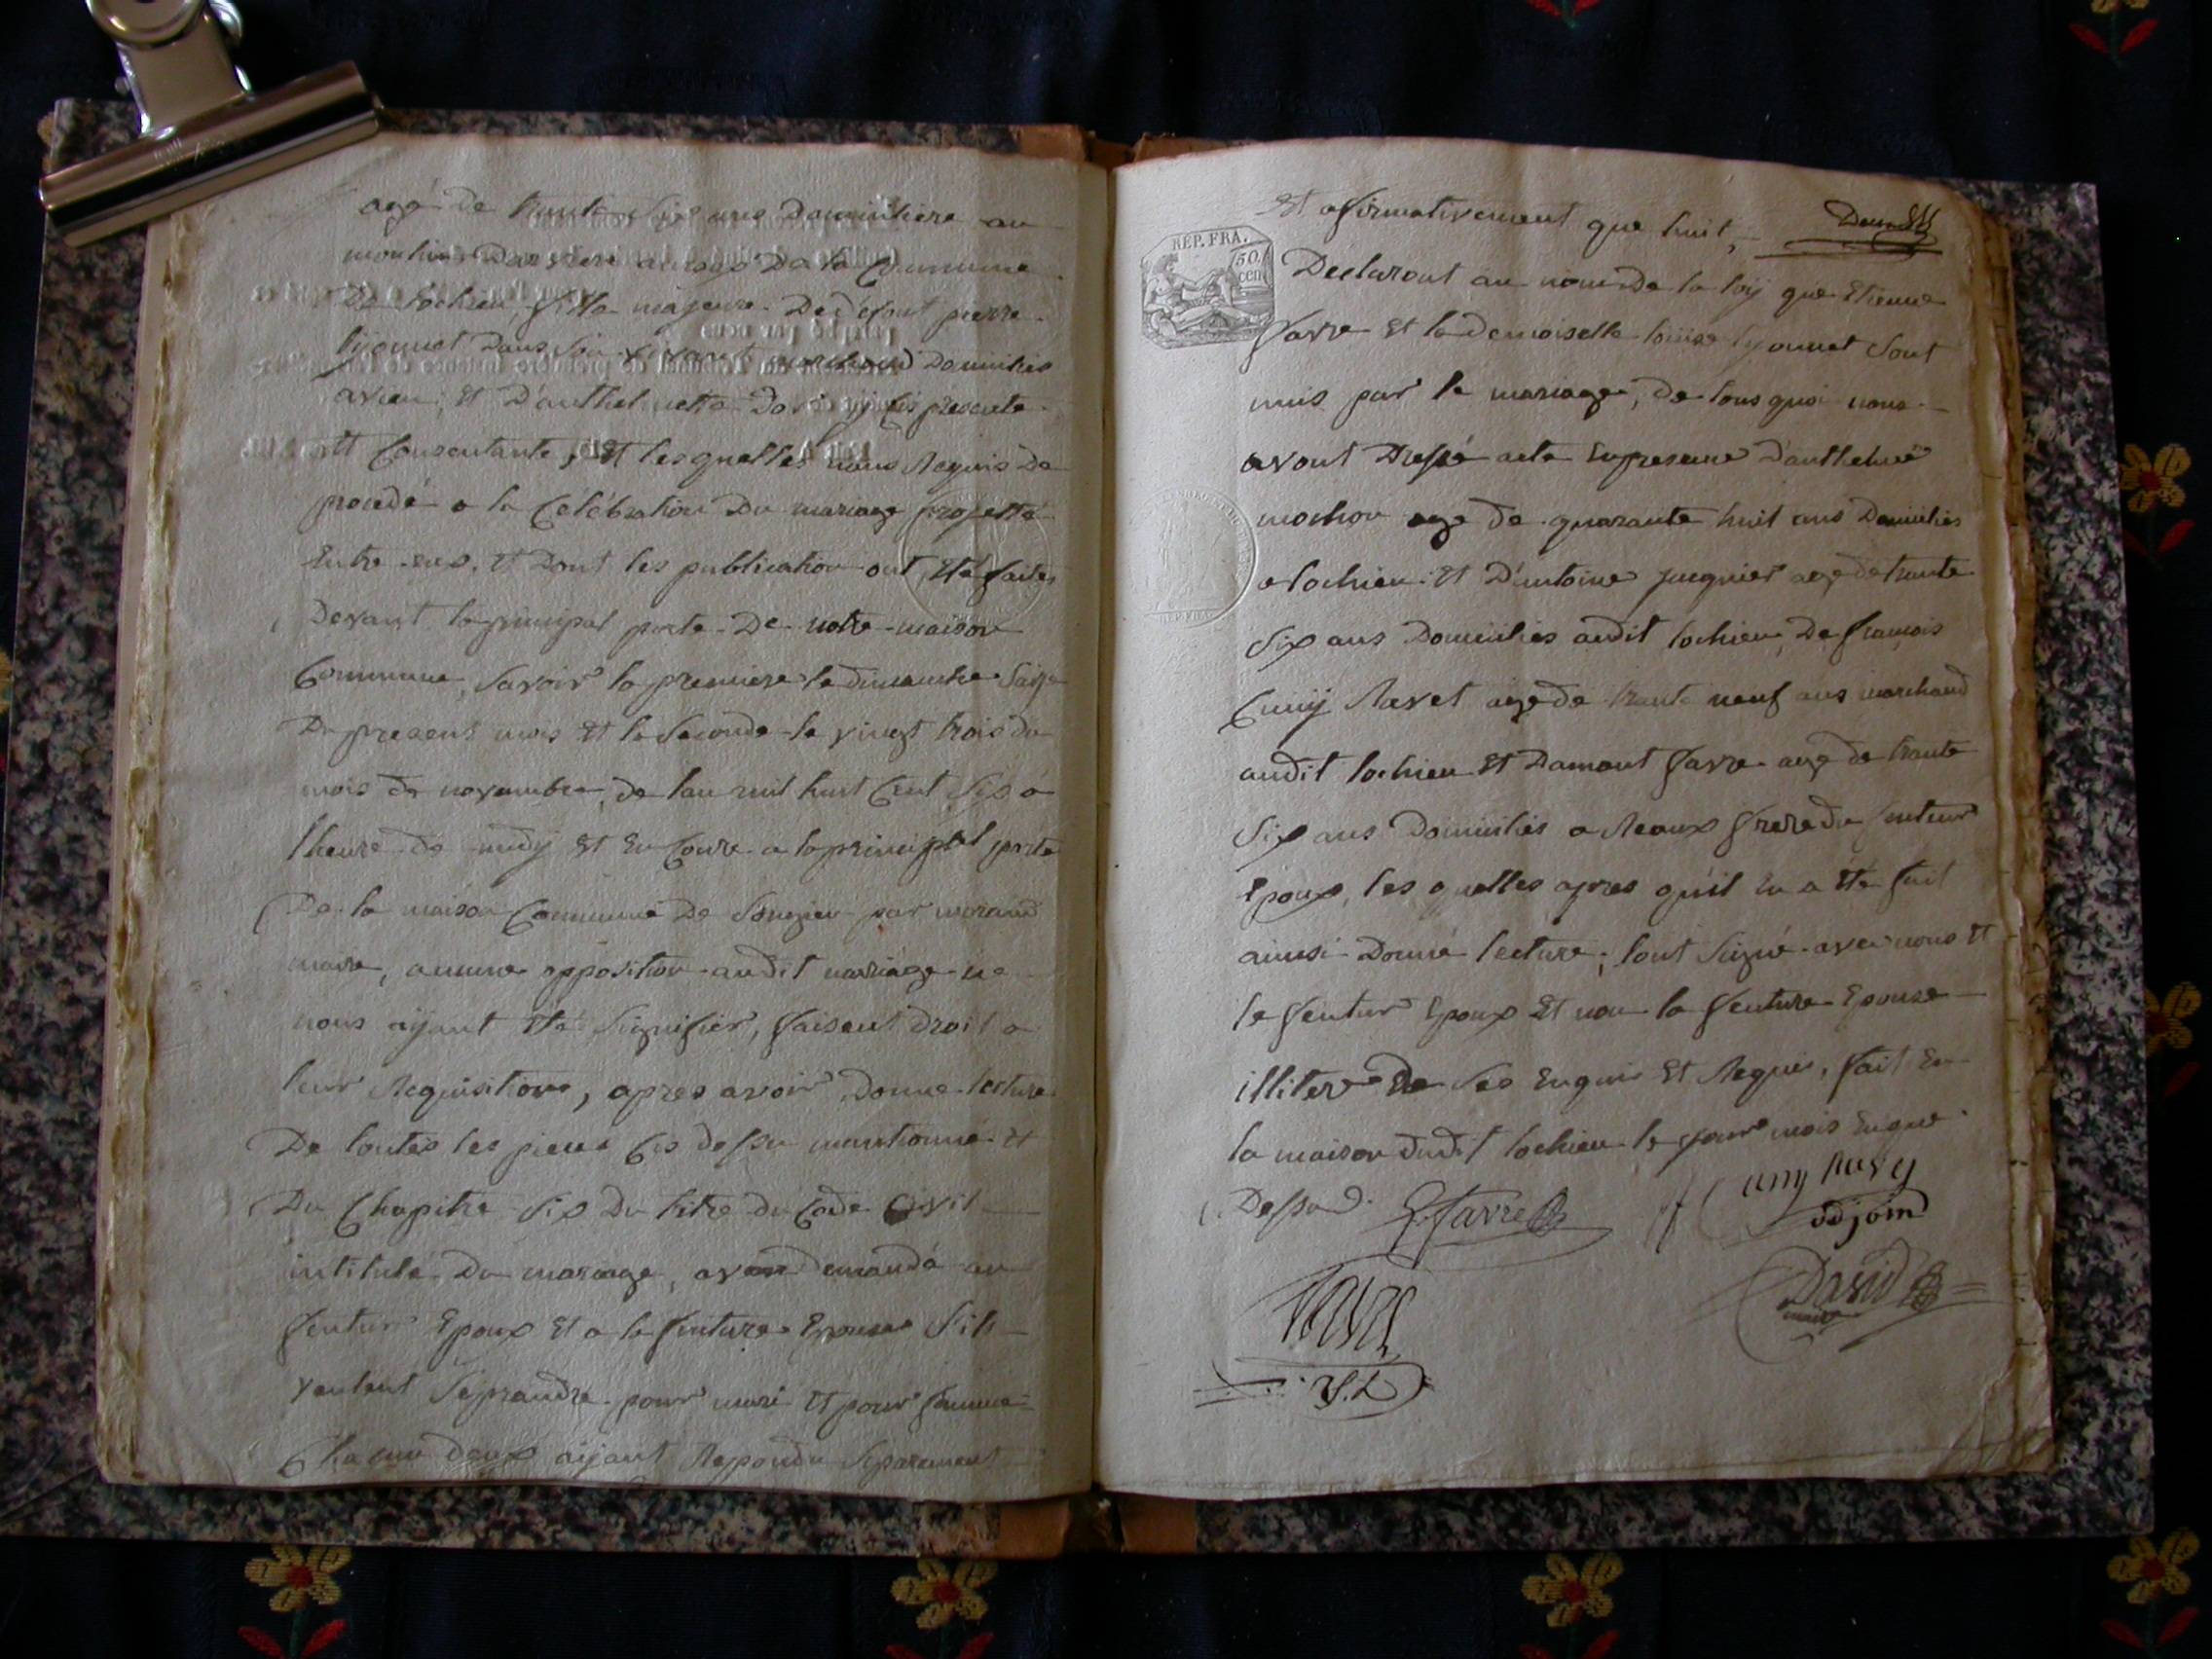 agé de trante six ans Domicilière au
moulin Darviere de la Commune
De lochieu, fille majeure De défunt pierre
lyonnet Dans son vivant marchand Domiciliés
a vieu, Et D'anthelmette ici presente
Et Consentante, Et lesquelles nous Requis De
procédé a la Célébration Du mariage projetté
Entre eux, Et Dont les publication ont Eté faites
Devant la principal porte De notre maison
Commune, Savoir la premiere le dimanche Saize
Du present mois Et la Seconde le vingt trois du
mois de novembre, de lan mil huit Cent Six a
lheure de midy Et En Coure a la principal porte
De la maison Commune De Songieu par morand
maire, aucune opposition audit mariage ne
nous aÿant Eté Signifier, faisant droit a
leur Requisitions, apres avoir Donne lecture
De toutes les pieces Cis dessu mantionné Et
Du Chapitre Six Du titre du Code Civil
intitulé Du mariage, avon demandé au
feutur Epoux Et a la feuture Epouse Sils
veulent Se prandre pour mari Et pour famme
Chacun deux aÿant Repondu Séparement
Et afirmativement que huit,
REP. FRA.
50 cen
Declaront au nom De la loÿ que Etienne
favre Et la Demoiselle louise lyonnet Sont
unis par le mariage, de tous quoi nous
avont Dressé acte En presance D'anthelme
mochon age de quarante huit ans Domiciliés
a lochieu Et D'antoine juquier age de trante
Six ans Domiciliés audit lochieu, De francois
Cuny Ravet age de trante neuf ans marchand
audit lochieu Et Damant favre age de trante
Six ans Domiciliés a Reaux frere du feuteur
Epoux, les quelles apres quil En a Eté fait
ainsi Donné lecture, lont Signé avec nous Et
le feutur Epoux Et non la feuture Epouse
illiterée De Ses Enquis Et Requis, fait En
la maison dudit lochieu le jour mois Enque
Dessud. E. favre
adjoin
David
maire